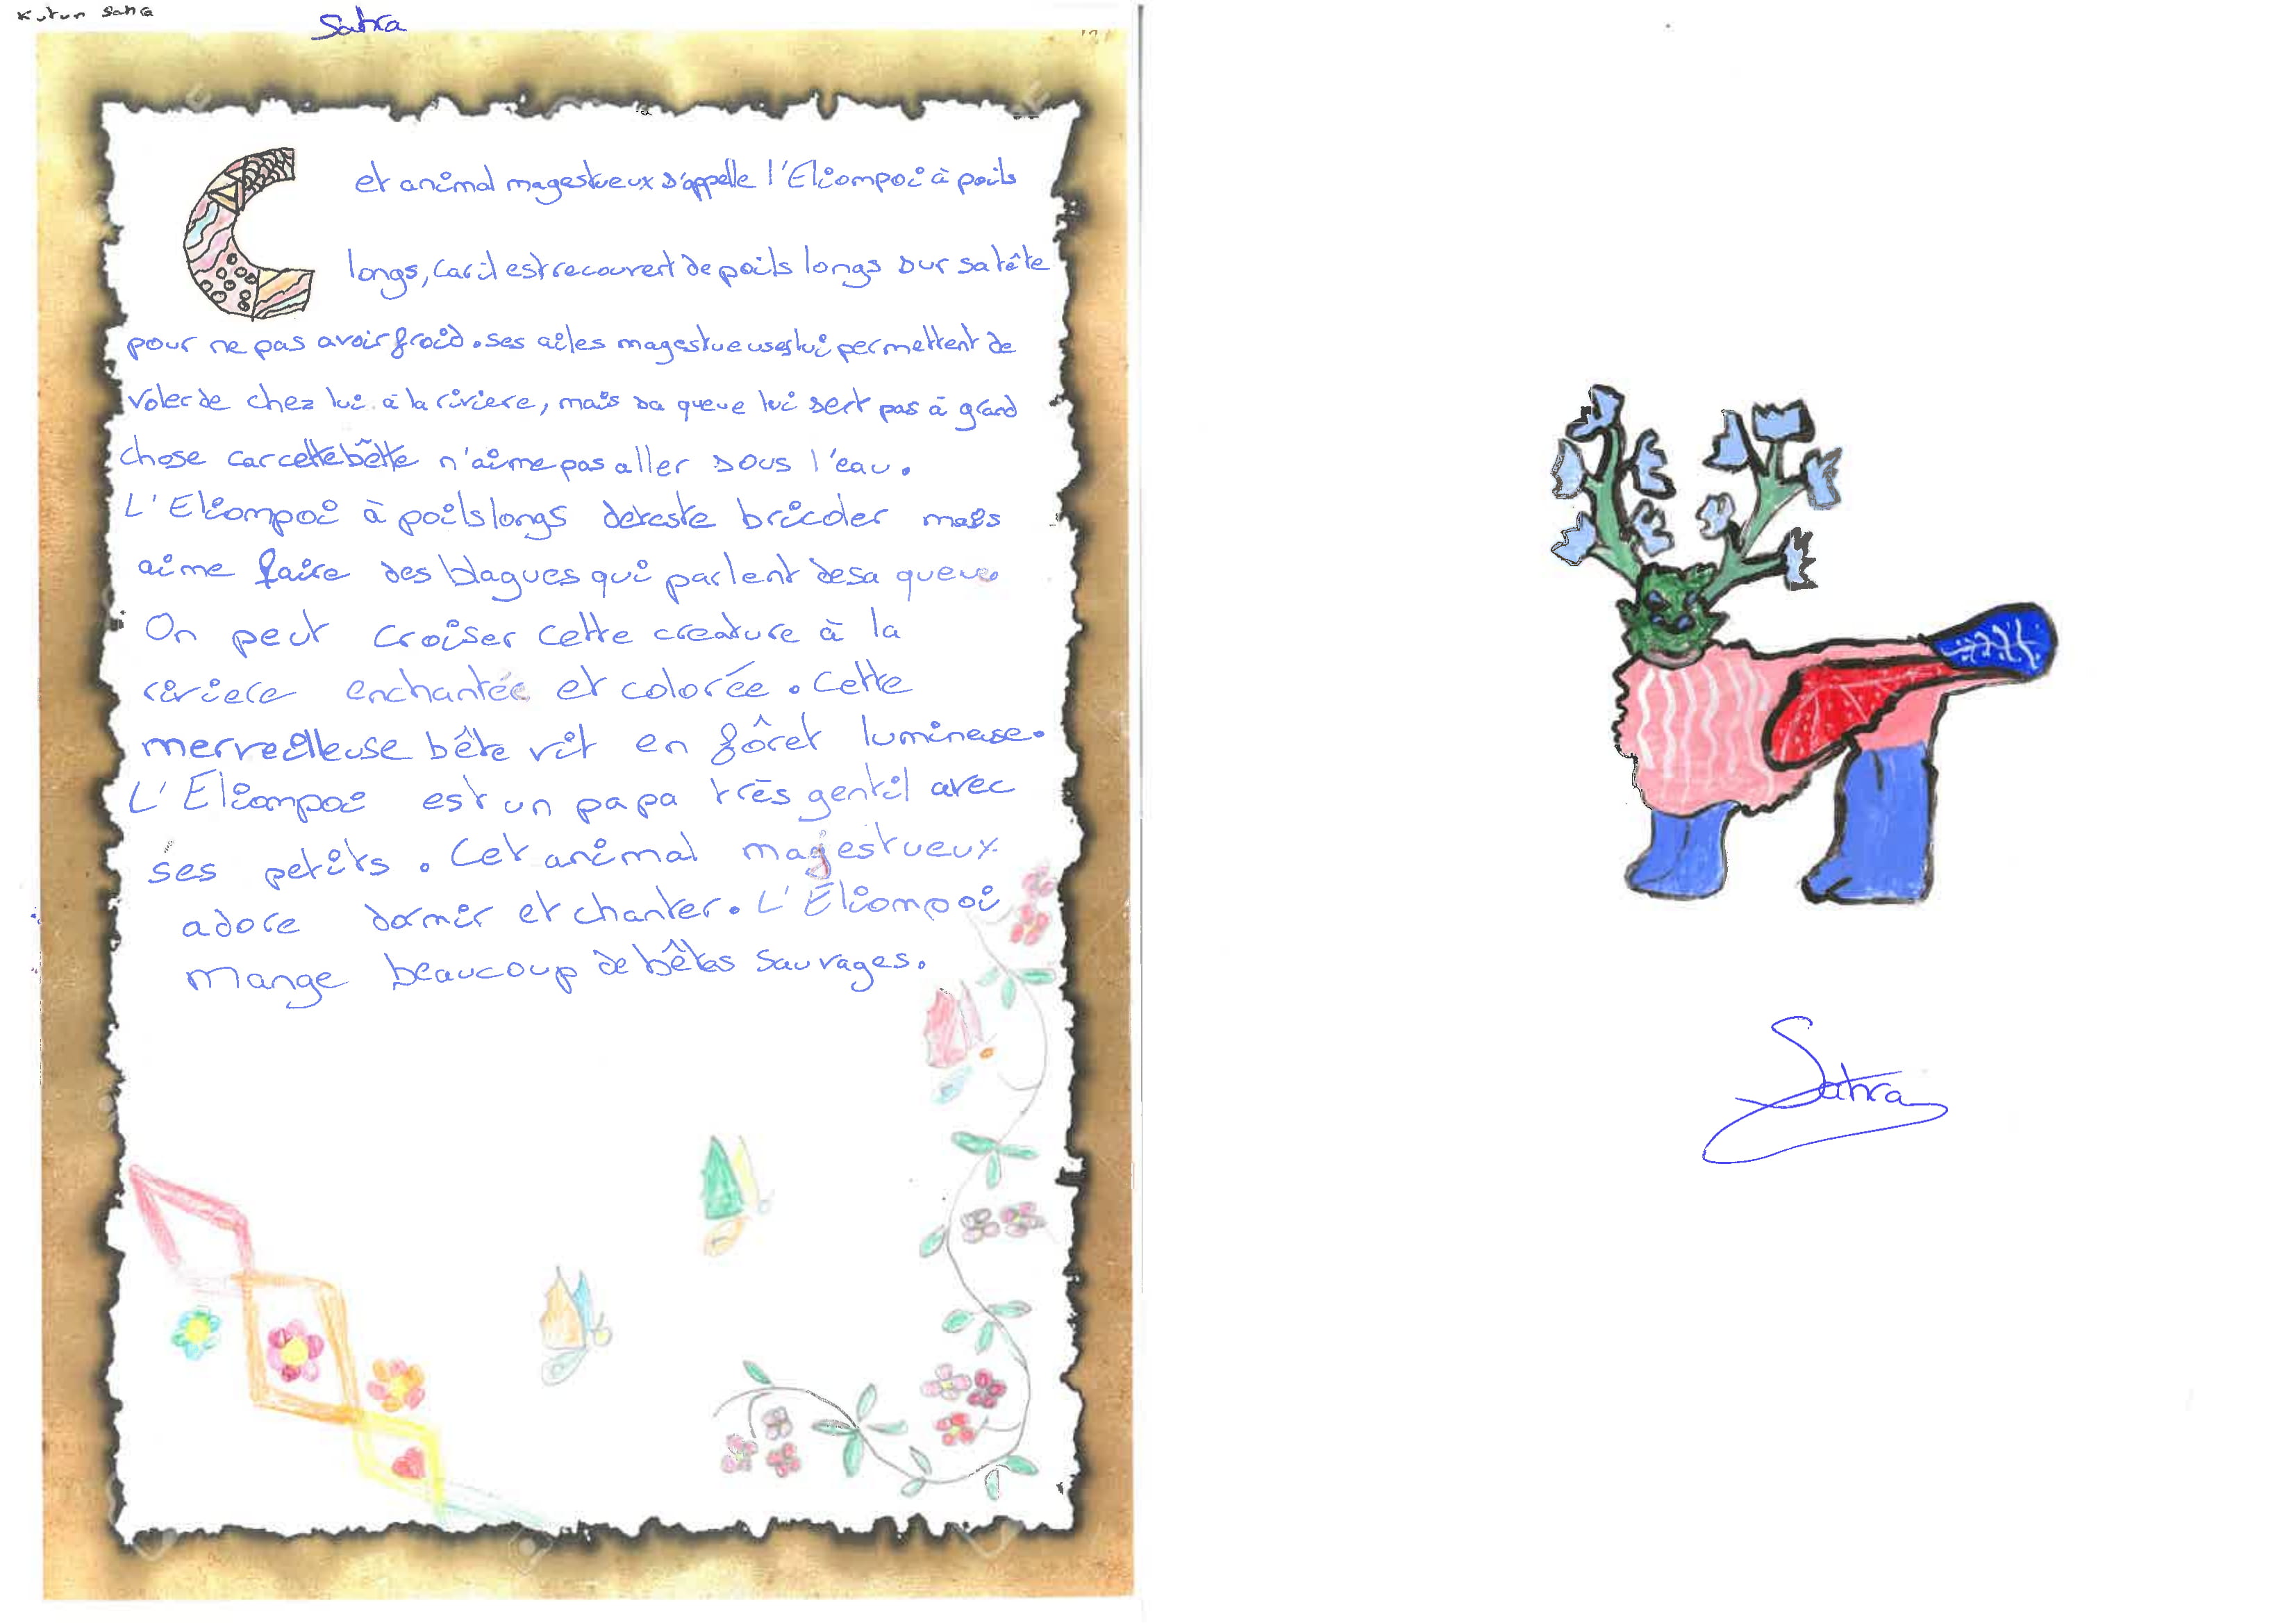 Kutun Sahra
Sahra
Cet animal magestueux s'appelle l'Eliompoi à poils
longs, car il est recouvert de poils longs sur sa tête
pour ne pas avoir froid. ses ailes magestueuses lui permettent de
voler de chez lui à la riviere, mais sa queue lui sert pas à grand
chose car cette bête n'aime pas aller sous l'eau.
L'Eliompoi à poils longs deteste bricoler mais
aime faire des blagues qui parlent de sa queue
On peut croiser cette creature à la
riviere enchantée et colorée. Cette
merveilleuse bête vit en fôret lumineuse.
L'Eliompoi est un papa très gentil avec
ses petits. Cet animal majestueux
adore dormir et chanter. L'Eliompoi
mange beaucoup de bêtes sauvages.
Sahra